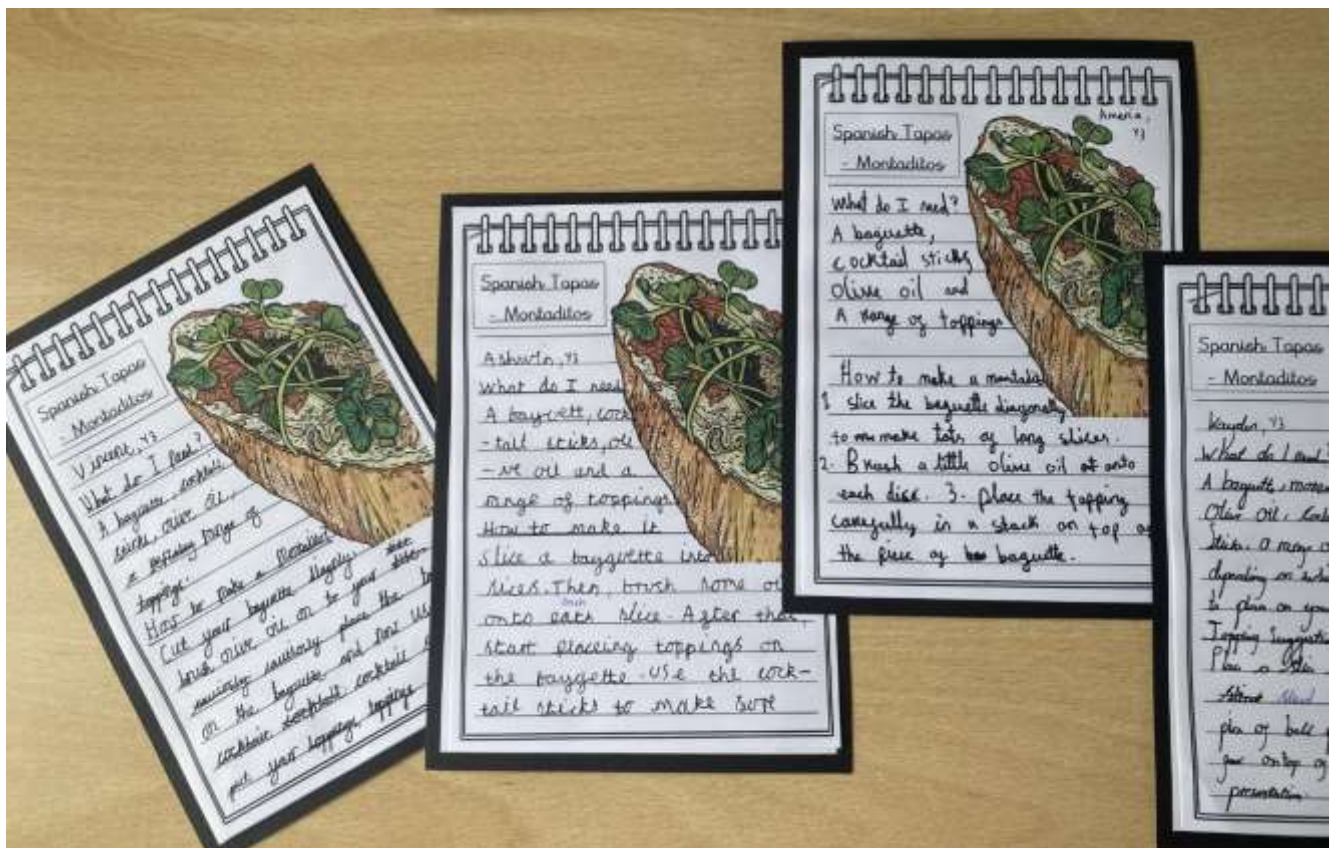 Spanish Tapas
- Montaditos
Vincent, Y3
What do I need?
A baguette, cocktail
sticks, olive oil,
a range of
toppings.
How to make a
Cut your baguette
brush olive oil on to your
place the
on the baguette and now use
cocktail
put your toppings
Spanish Tapas
- Montaditos
Ashwin, Y3
What do I need
A baygett, cock
-tail sticks, oli
-ve oil and a
range of toppings
How to make it
Slice a bayguette into
slices. Then, brush some oi
onto each slice. After that,
start placeing toppings on
the bayggette. Use the cock-
tail sticks to make sure
Spanish Tapas
- Montaditos
Y3
What do I need?
A baguette,
cocktail sticks
Olive oil and
A range of toppings
How to make a montadi
1. slice the baguette diagonally
to make lots of long slices.
2. Brush a little olive oil onto
each disc. 3. place the topping
carefully in a stack on top o
the piece of baguette.
Spanish Tapas
- Montaditos
Kayden, Y3
What do I need?
A baguette,
Olive oil,
sticks. A range o
depending on
to place on your
Topping suggesti
Place a
on top of
presentation.